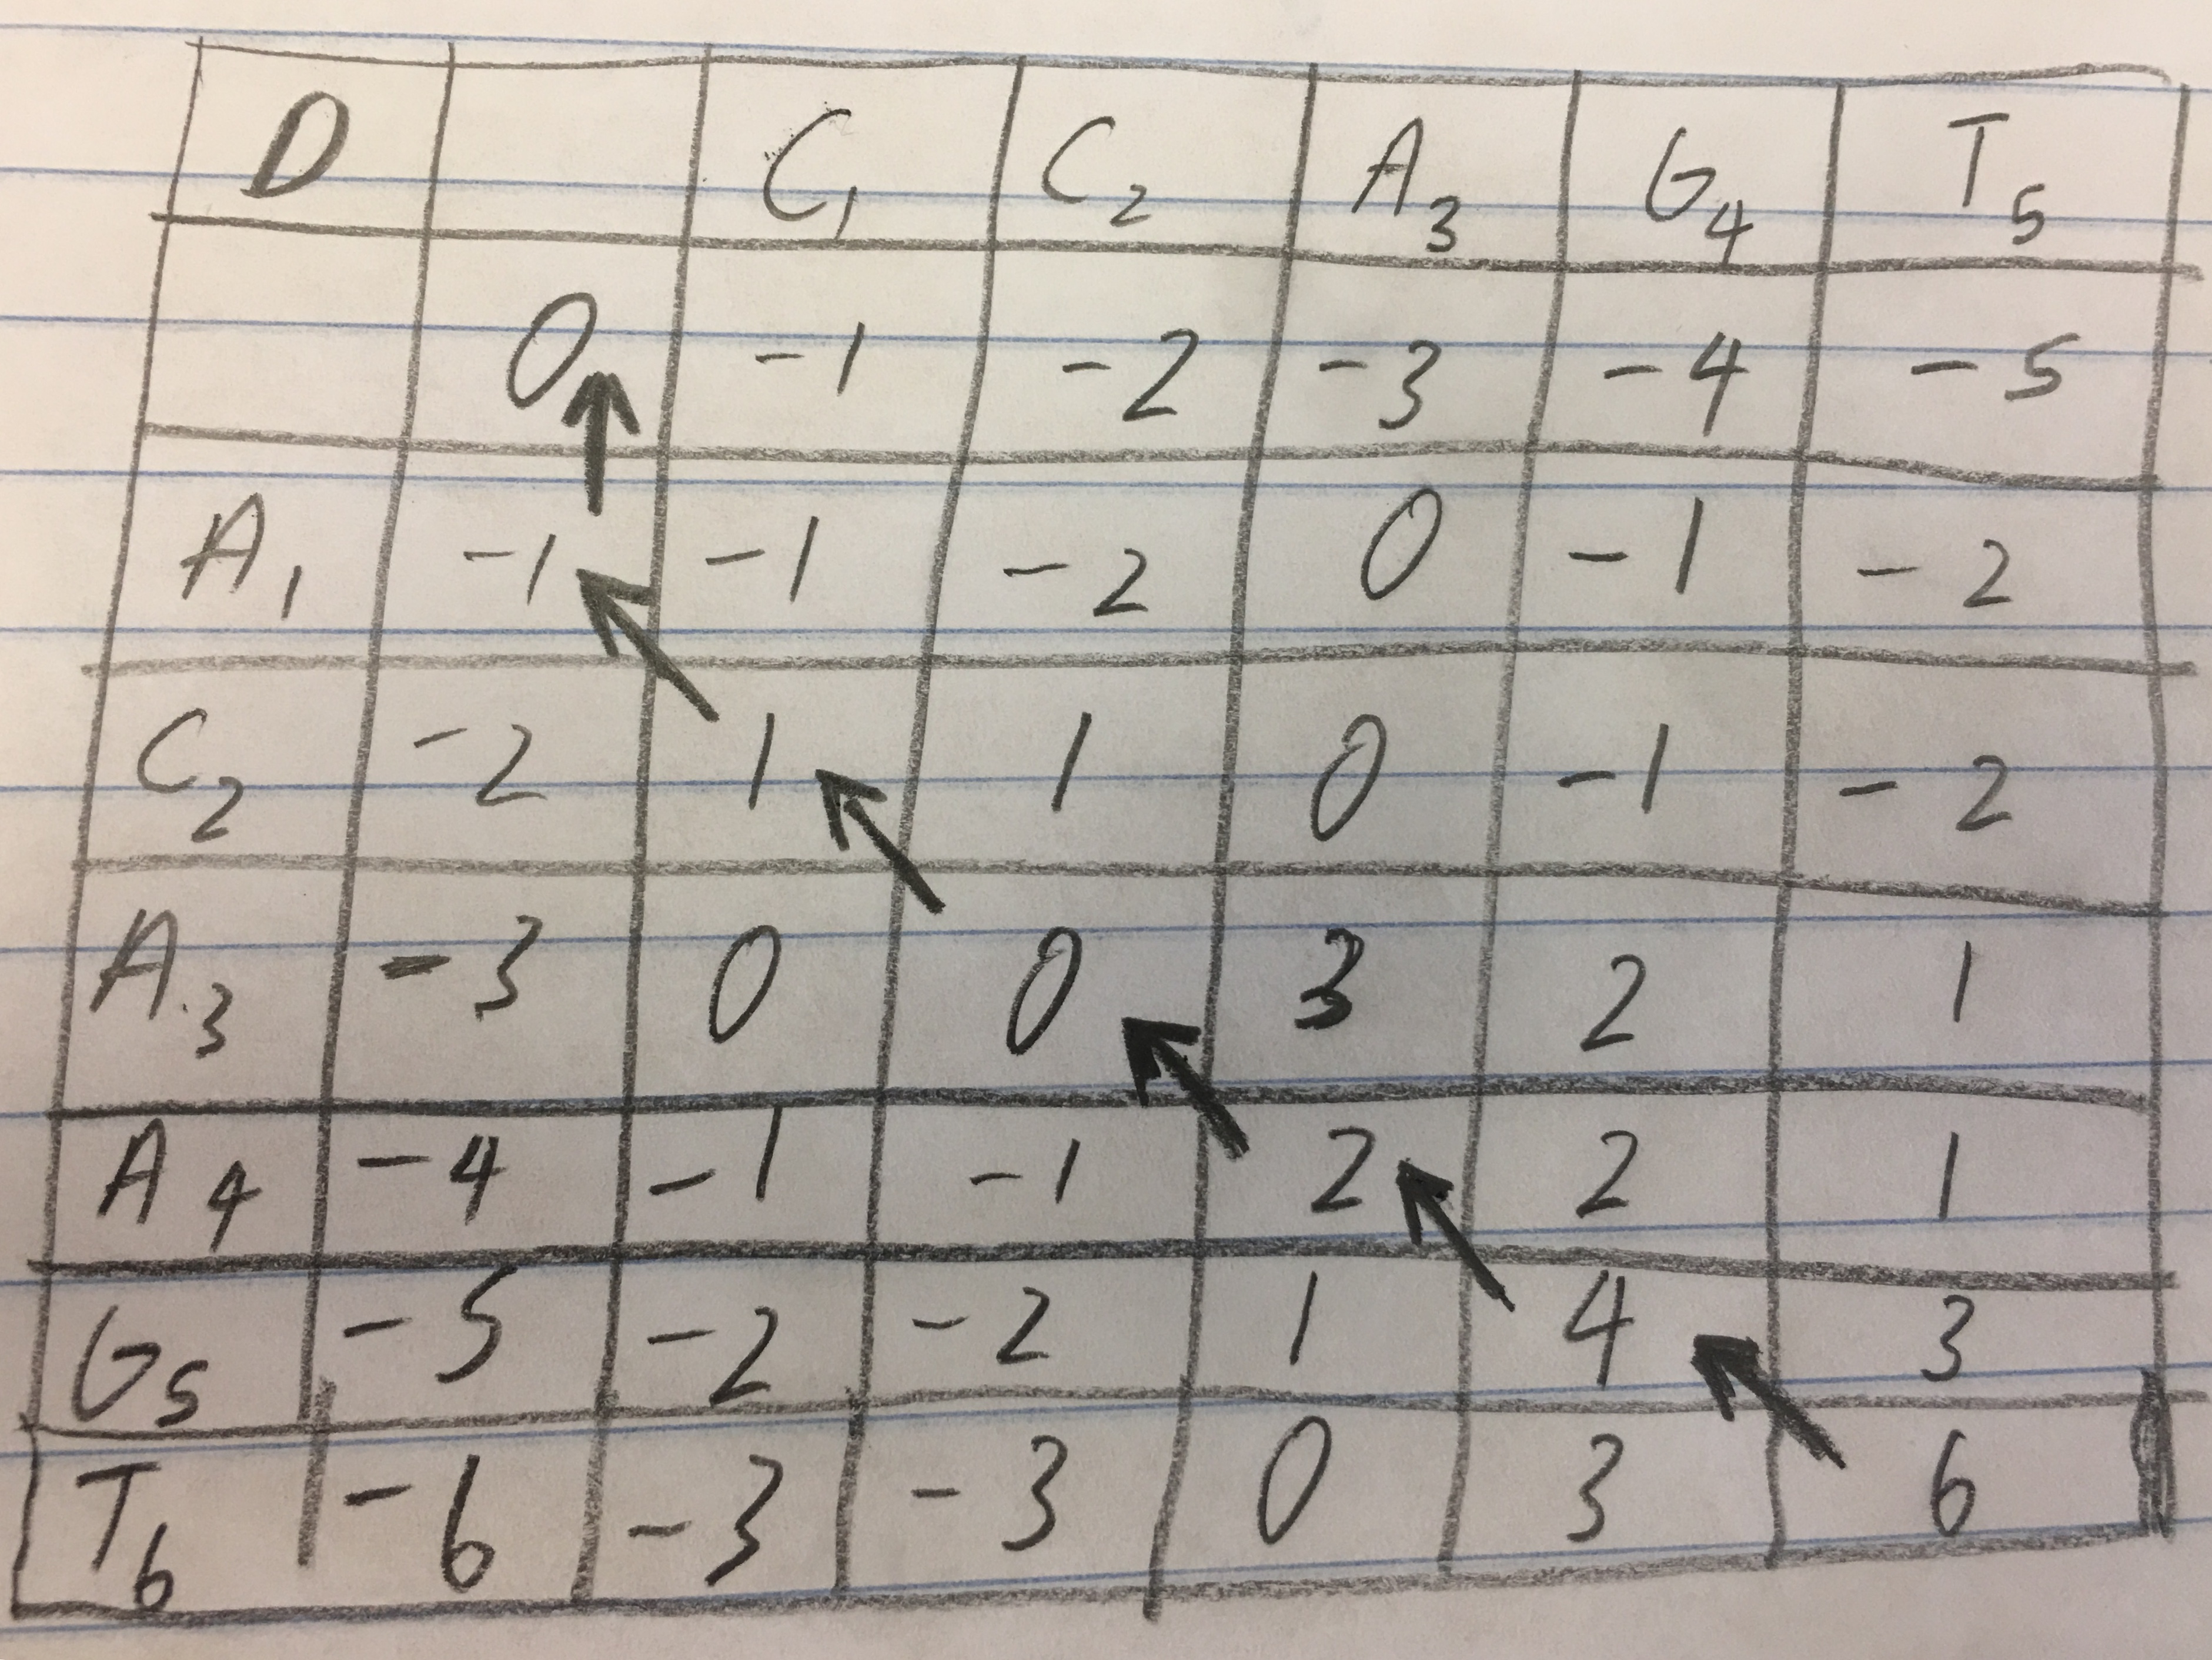 D C₁ C₂ A₃ G₄ T₅
0 -1 -2 -3 -4 -5
A₁ -1 -1 -2 0 -1 -2
C₂ -2 1 1 0 -1 -2
A₃ -3 0 0 3 2 1
A₄ -4 -1 -1 2 2 1
G₅ -5 -2 -2 1 4 3
T₆ -6 -3 -3 0 3 6